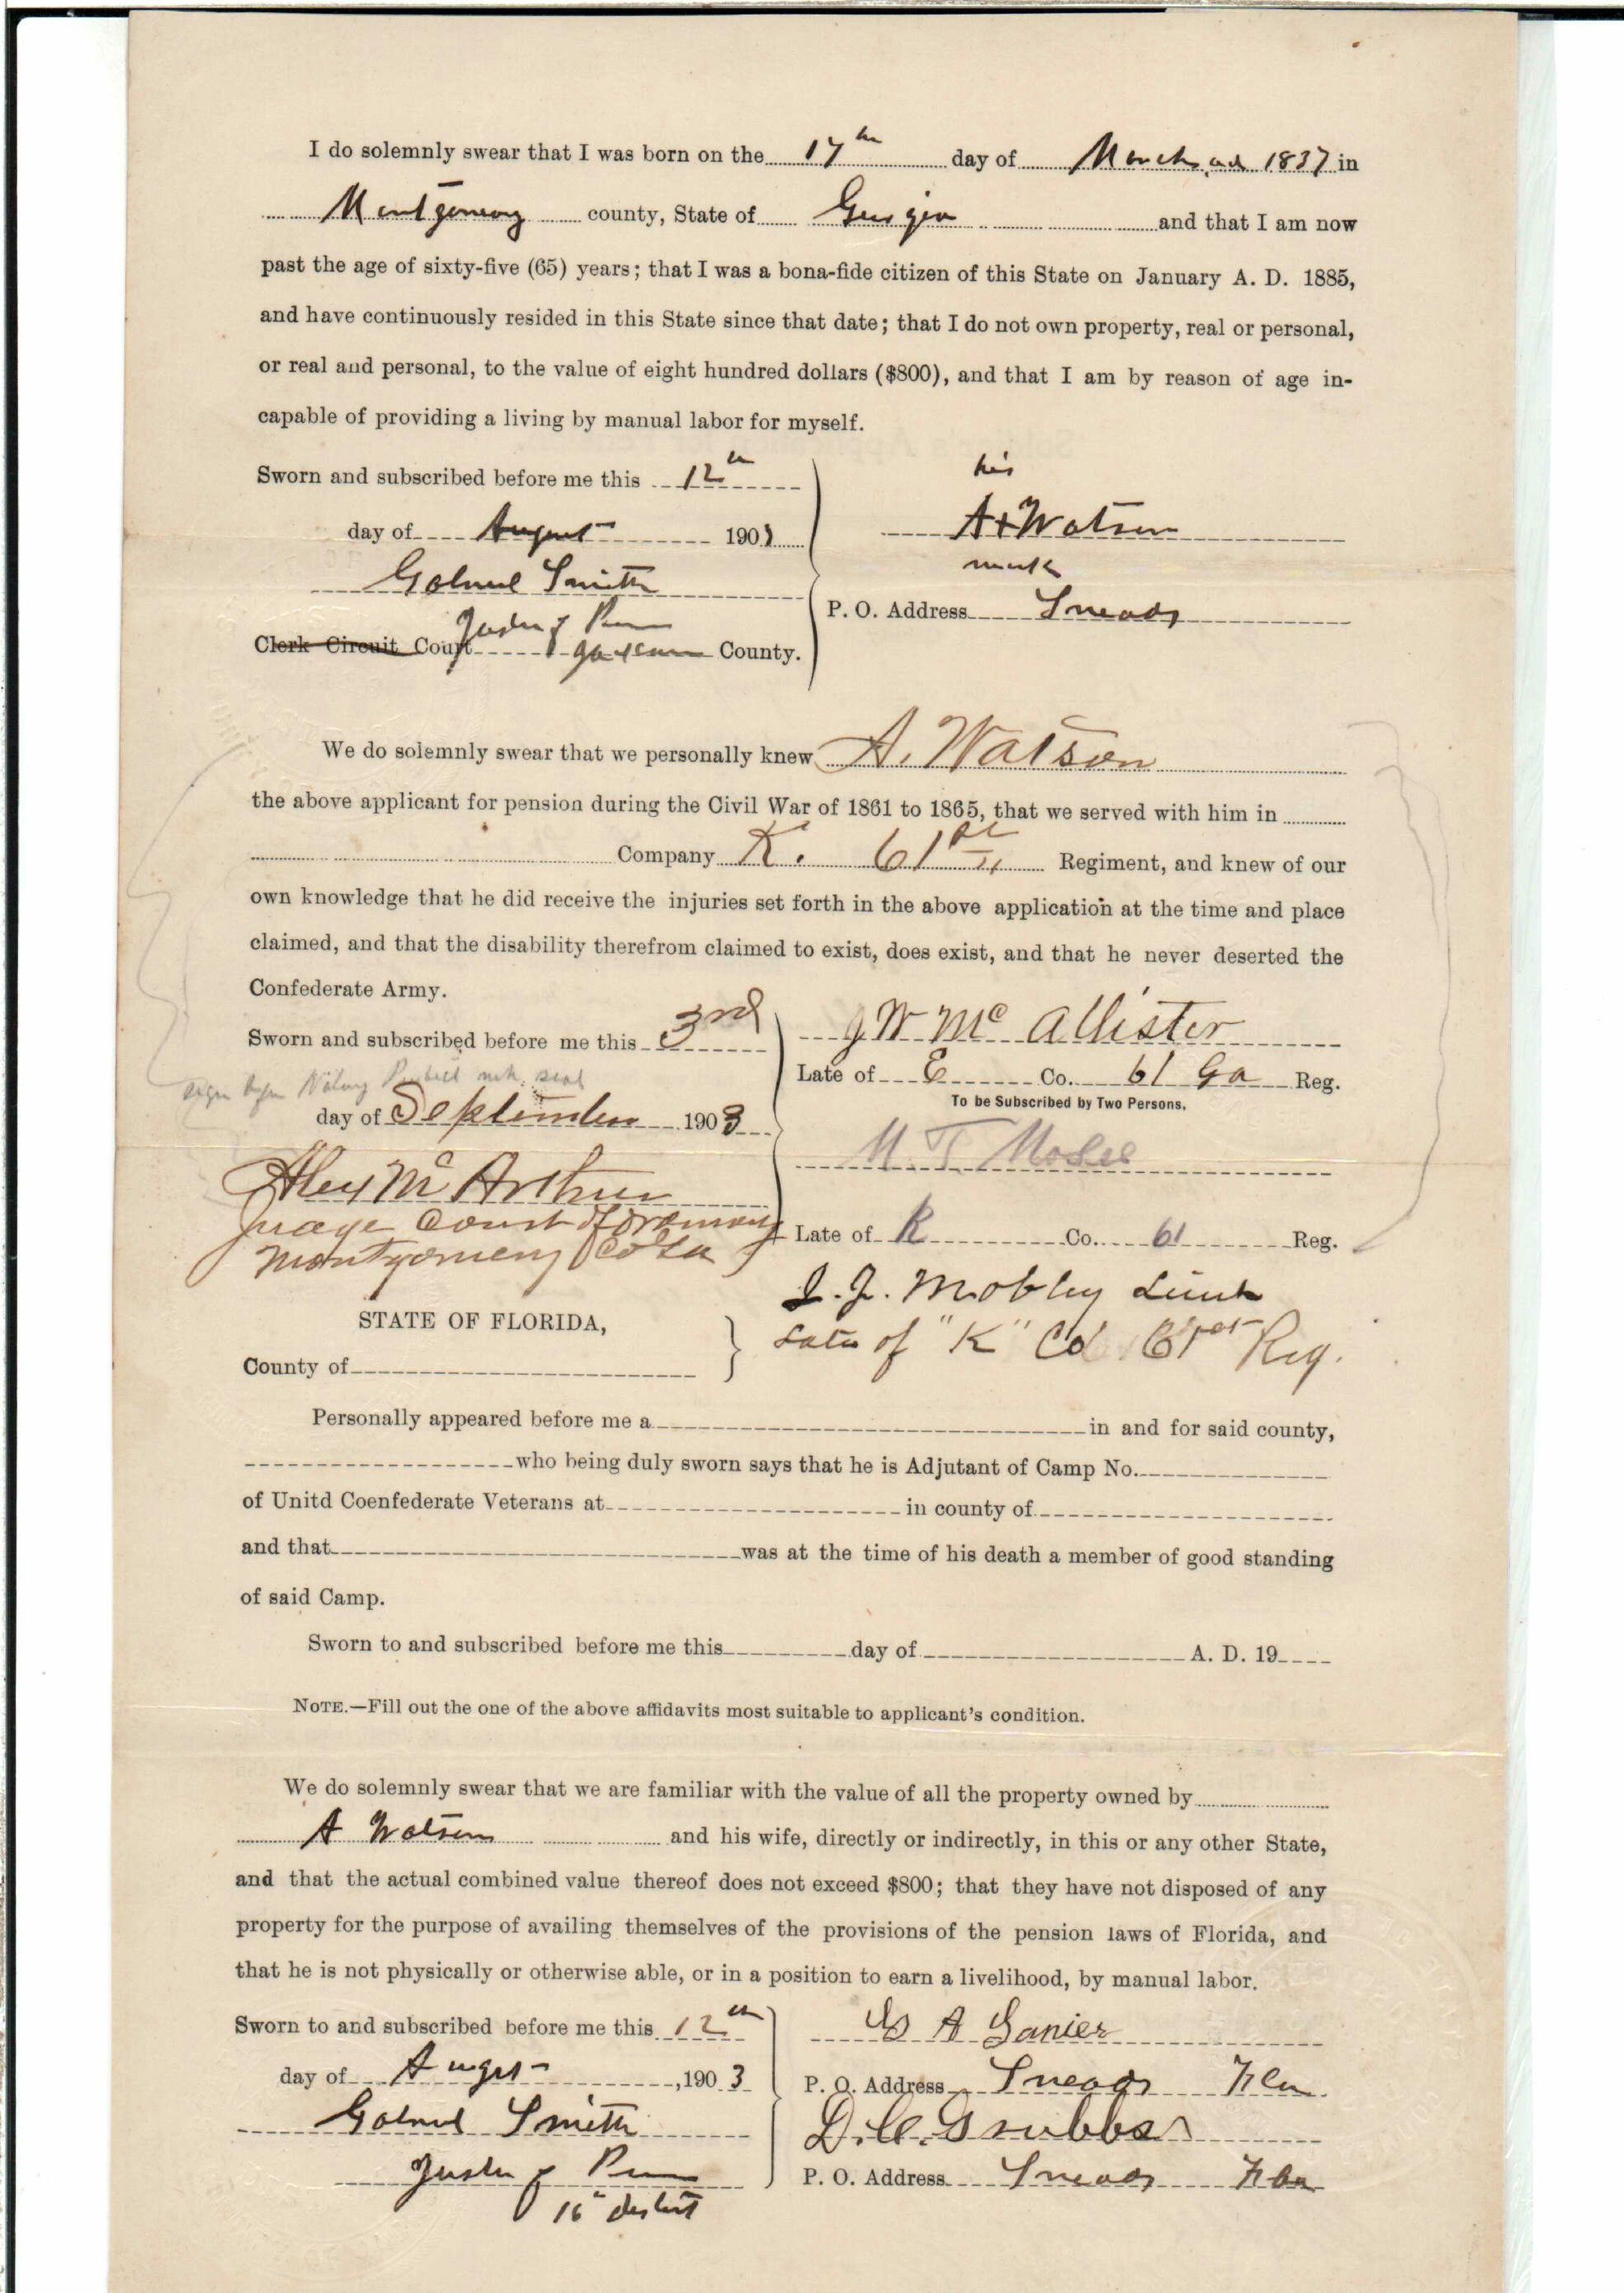 I do solemnly swear that I was born on the 17th day of March, AD 1837 in
Montgomery county, State of Georgia and that I am now
past the age of sixty-five (65) years; that I was a bona-fide citizen of this State on January A. D. 1885,
and have continuously resided in this State since that date; that I do not own property, real or personal,
or real and personal, to the value of eight hundred dollars ($800), and that I am by reason of age in-
capable of providing a living by manual labor for myself.
Sworn and subscribed before me this 12th
day of August 1903
his
A + Watson
mark
P. O. Address Sneads
Smith
Clerk Circuit Court County.
We do solemnly swear that we personally knew A. Watson
the above applicant for pension during the Civil War of 1861 to 1865, that we served with him in
Company K. 61st Regiment, and knew of our
own knowledge that he did receive the injuries set forth in the above application at the time and place
claimed, and that the disability therefrom claimed to exist, does exist, and that he never deserted the
Confederate Army.
Sworn and subscribed before me this 3rd
day of September 1903
Alex McArthur
Judge Court of Ordinary
Montgomery Co Ga
J W McAllister
Late of E Co. 61 Ga Reg.
To be Subscribed by Two Persons.
M. T. Mosee
Late of K Co. 61 Reg.
J. J. Mobley Lieut
Late of "K" Co 61st Reg.
STATE OF FLORIDA,
County of
Personally appeared before me a in and for said county,
who being duly sworn says that he is Adjutant of Camp No.
of Unitd Coenfederate Veterans at in county of
and that was at the time of his death a member of good standing
of said Camp.
Sworn to and subscribed before me this day of A. D. 19
NOTE.—Fill out the one of the above affidavits most suitable to applicant's condition.
We do solemnly swear that we are familiar with the value of all the property owned by
A Watson and his wife, directly or indirectly, in this or any other State,
and that the actual combined value thereof does not exceed $800; that they have not disposed of any
property for the purpose of availing themselves of the provisions of the pension laws of Florida, and
that he is not physically or otherwise able, or in a position to earn a livelihood, by manual labor.
Sworn to and subscribed before me this 12th
day of August, 1903
Smith
Justice of Peace
16th district
A Lanier
P. O. Address Sneads Fla.
D. C. Grubbs
P. O. Address Sneads Fla